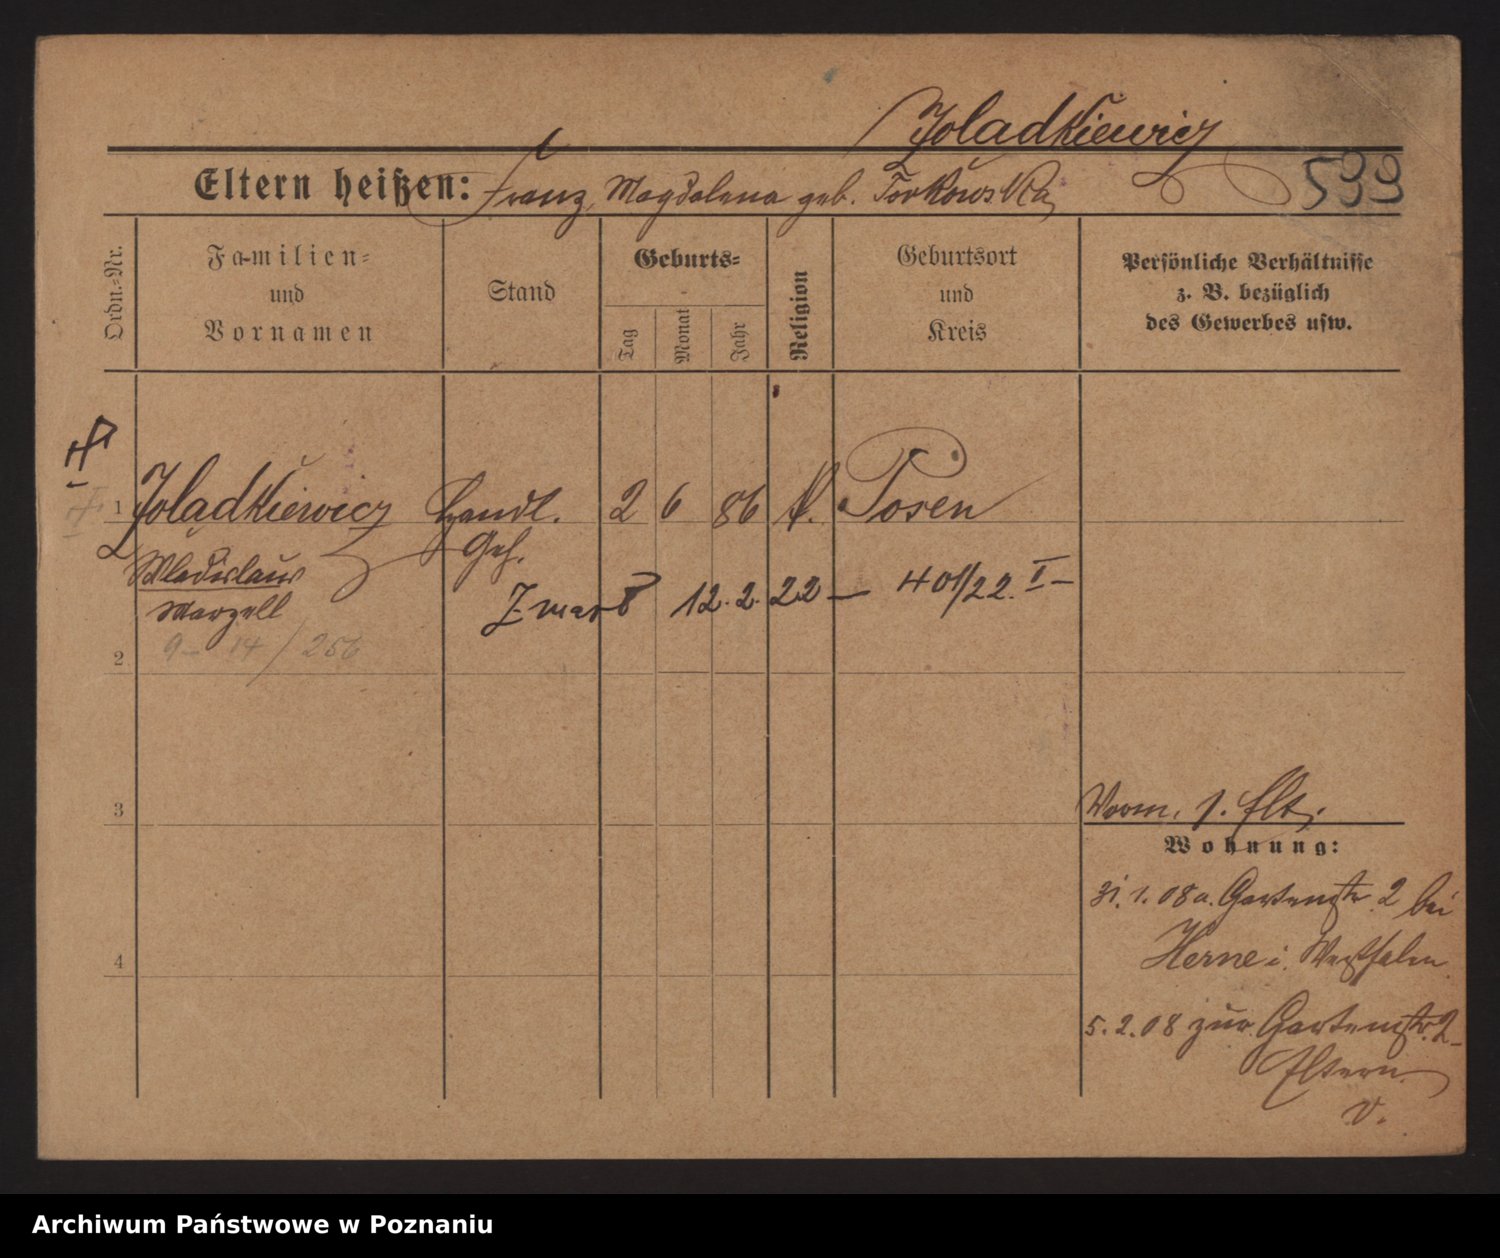 Joladkiewicz
Eltern heißen: Franz, Magdalena geb. Torkowska
599
Ordn.-Nr.
Familien-
und
Vornamen
Stand
Geburts-
Tag
Monat
Jahr
Religion
Geburtsort
und
Kreis
Persönliche Verhältnisse
z. B. bezüglich
des Gewerbes usw.
1 Joladkiewicz Handl. 2 6 86 k. Posen
Geh.
Wladislaus
Marzell
Zmarł 12. 2. 22 – 401/22. I –
9 – 14 / 256
2
3
4
Vorm. 1. Blt.
Wohnung:
31. 1. 08 a. Gartenstr. 2 bei
Herne i. Westfalen
5. 2. 08 zur. Gartenstr. 2
Eltern
v.
Archiwum Państwowe w Poznaniu